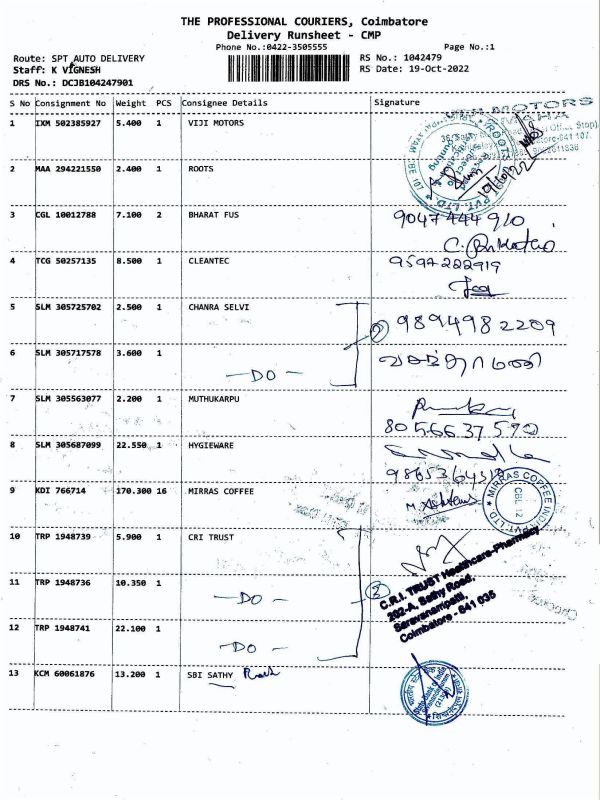 THE PROFESSIONAL COURIERS, Coimbatore
Delivery Runsheet - CMP
Phone No.:0422-3505555 Page No.:1
Route: SPT AUTO DELIVERY RS No.: 1042479
Staff: K VIGNESH RS Date: 19-Oct-2022
DRS No.: DCJB104247901
S No Consignment No Weight PCS Consignee Details Signature
1 IXM 502385927 5.400 1 VIJI MOTORS
MOTORS
2 MAA 294221550 2.400 1 ROOTS
19/10/22
3 CGL 10012788 7.100 2 BHARAT FUS
4 TCG 50257135 8.500 1 CLEANTEC
5 SLM 305725702 2.500 1 CHANRA SELVI
2 9894982209
6 SLM 305717578 3.600 1
-DO-
7 SLM 305563077 2.200 1 MUTHUKARPU
8056637570
8 SLM 305687099 22.550 1 HYGIEWARE
9 KDI 766714 170.300 16 MIRRAS COFFEE
MIRRAS COFFEE
10 TRP 1948739 5.900 1 CRI TRUST
11 TRP 1948736 10.350 1
-DO-
3
C.R.I. TRUST Healthcare-Pharmacy
202-A, Sathy Road,
Saravanampatti,
Coimbatore - 641 035
12 TRP 1948741 22.100 1
-DO-
13 KCM 60061876 13.200 1 SBI SATHY